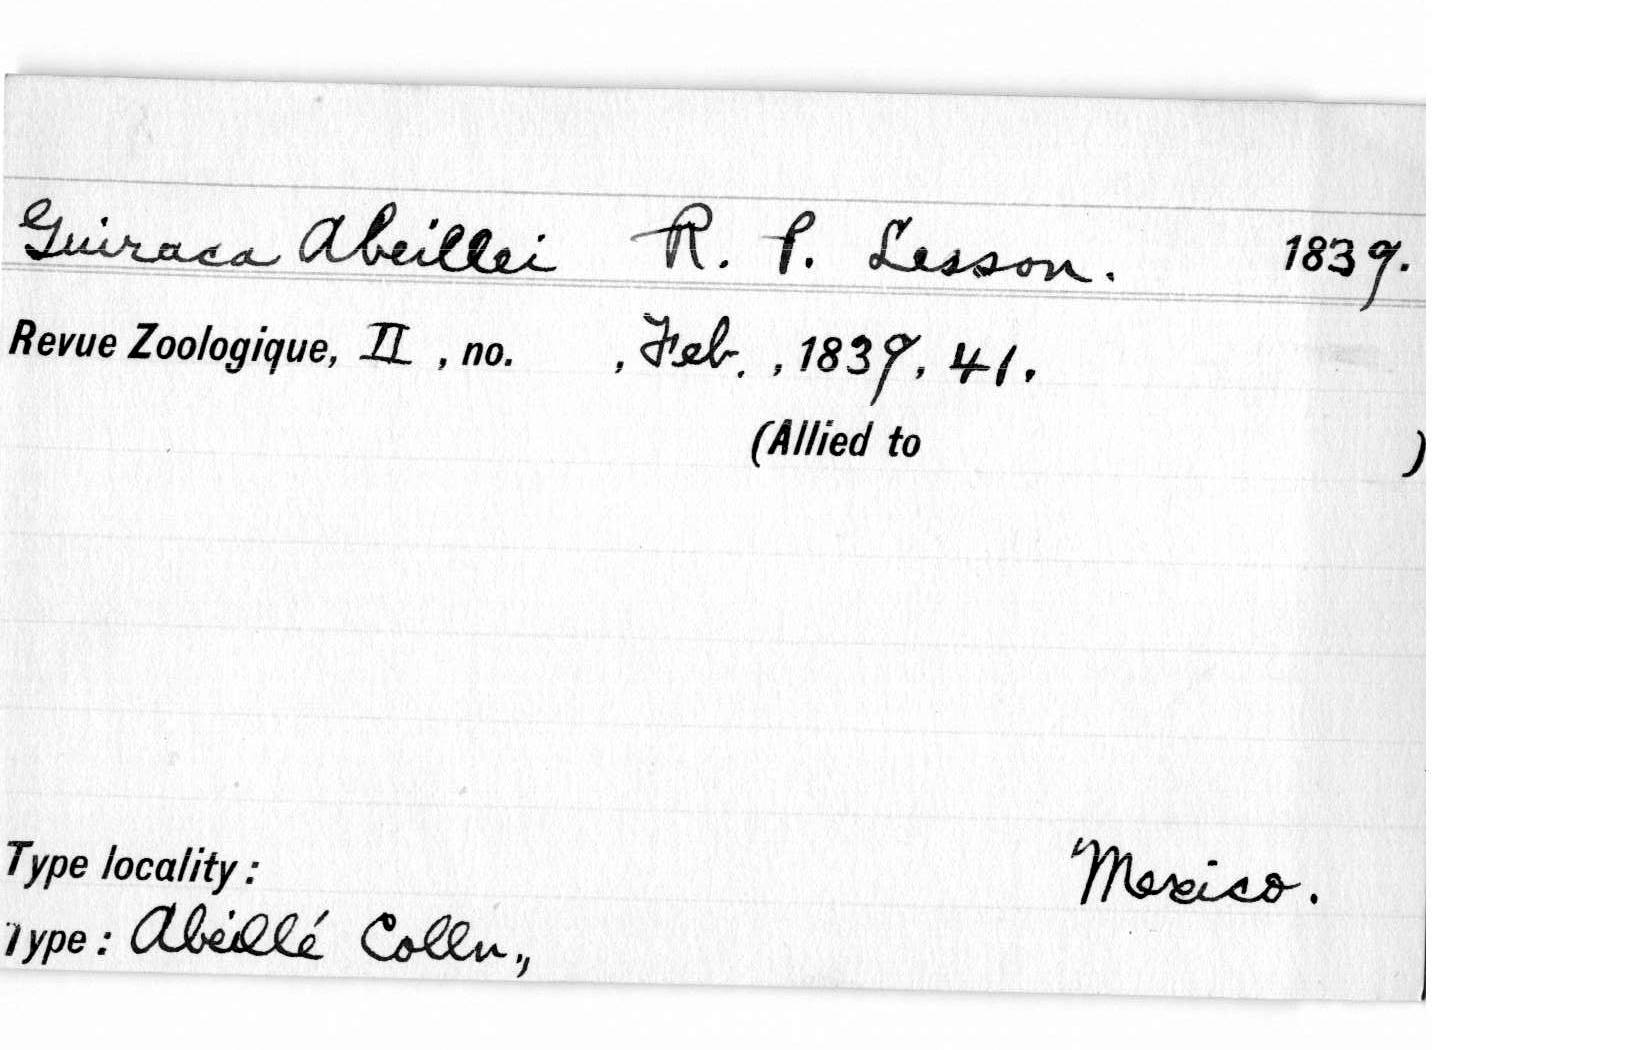 Guiraca Abeillei R. P. Lesson. 1839.
Revue Zoologique, II , no. , Feb. , 1839, 41.
(Allied to )
Type locality: Mexico.
Type: Abeillé Colln.,